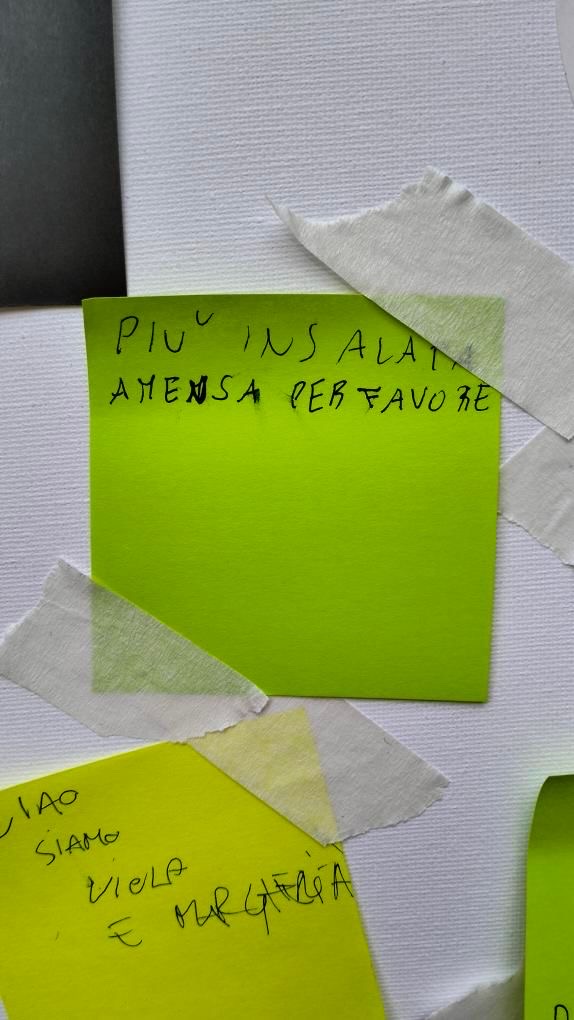 PIU' INSALATA
AMENSA PER FAVORE
CIAO
SIAMO
VIOLA
E